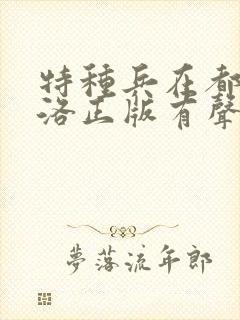 特種兵在都
洛正版有聲
夢落流年郎